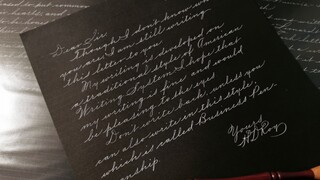 Dear Sir
Though I don't know who
you are, I am still writing
this letter to you.
My writing is developed on
a traditional style of American
Writing System. I hope that
my writing is fine and would
be pleasing to the eyes.
Don't write back, unless you
can also write in this style,
which is called Business Pen-
manship.
Yours